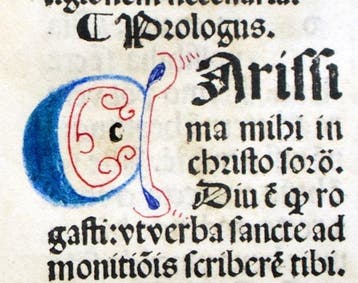 ligionem necessaria.
¶ Prologus.
CArissi
ma mihi in
christo sorō.
Diu ē qꝙ ro
gasti: vt verba sancte ad
monitiōis scriberē tibi.